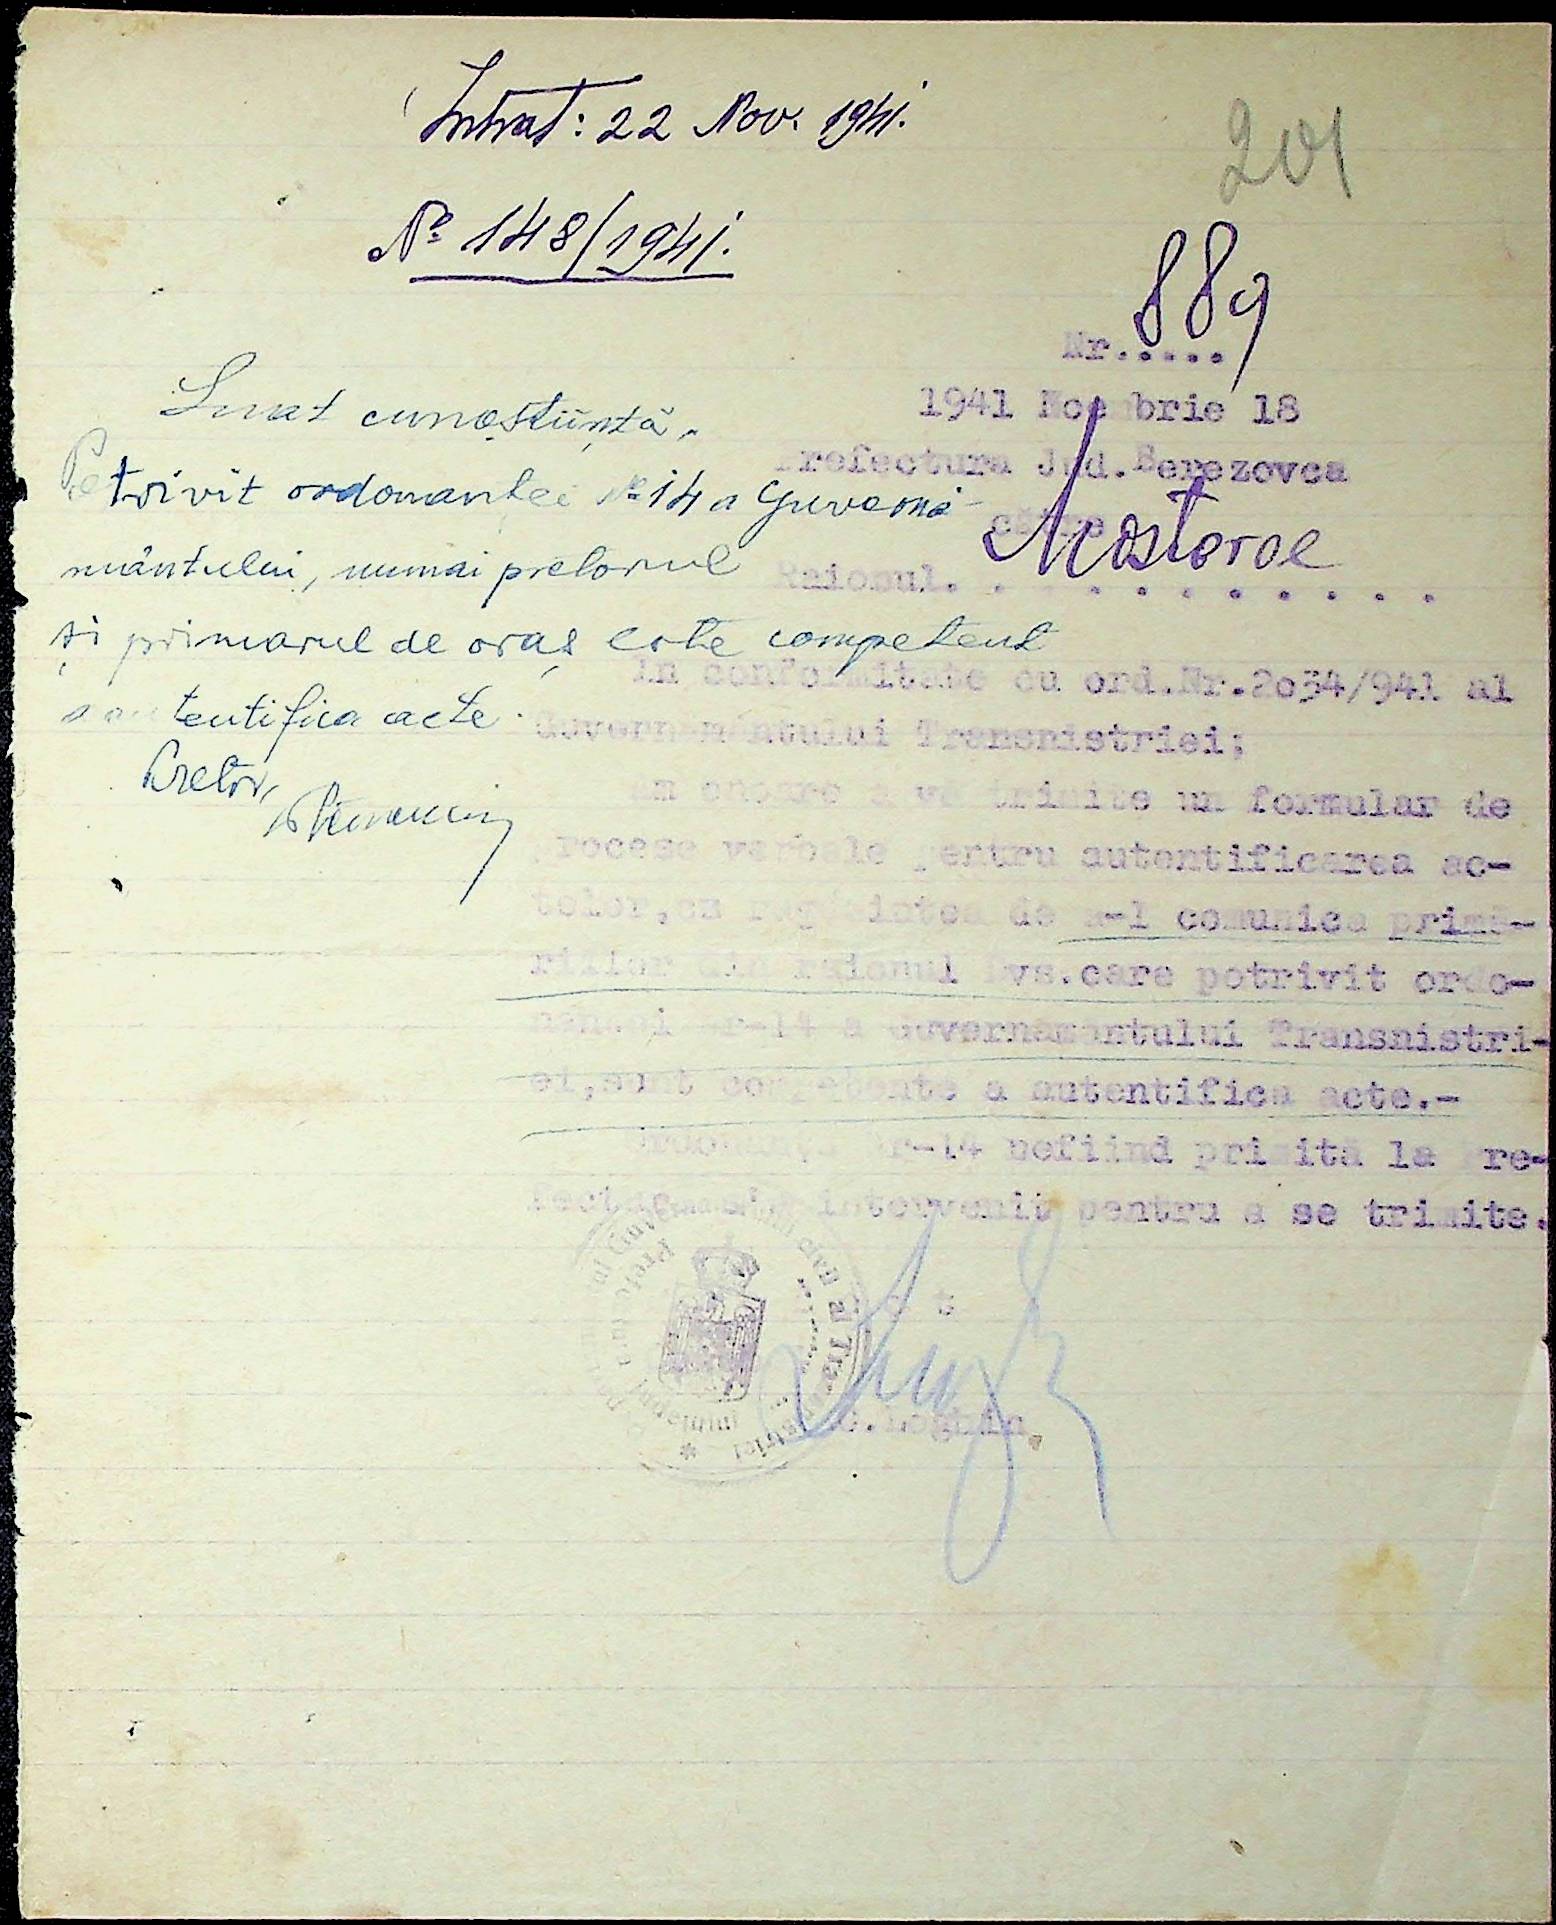 Intrat: 22 Nov. 1941.
201
No 148/1941.
Nr..... 889
1941 Noembrie 18
Prefectura Jud.Berezovca
către
Raionul. Mostovoe
Luat cunoștiință.
Potrivit ordonanței No 14 a Guvernă-
mântului, numai pretorul
și primarul de oraș este competent
a autentifica acte.
Pretor,
In conformitate cu ord.Nr.2o34/941 al
Guvernământului Transnistriei;
Am onoare a vă trimite un formular de
procese verbale pentru autentificarea ac-
telor,cu rugămintea de a-l comunica primă-
riilor din raionul Dvs.care potrivit ordo-
nanței Nr-14 a Guvernământului Transnistri-
ei,sunt competente a autentifica acte.-
Ordonanța Nr-14 nefiind primită la Pre-
fectură am intervenit pentru a se trimite.
C.Loghin